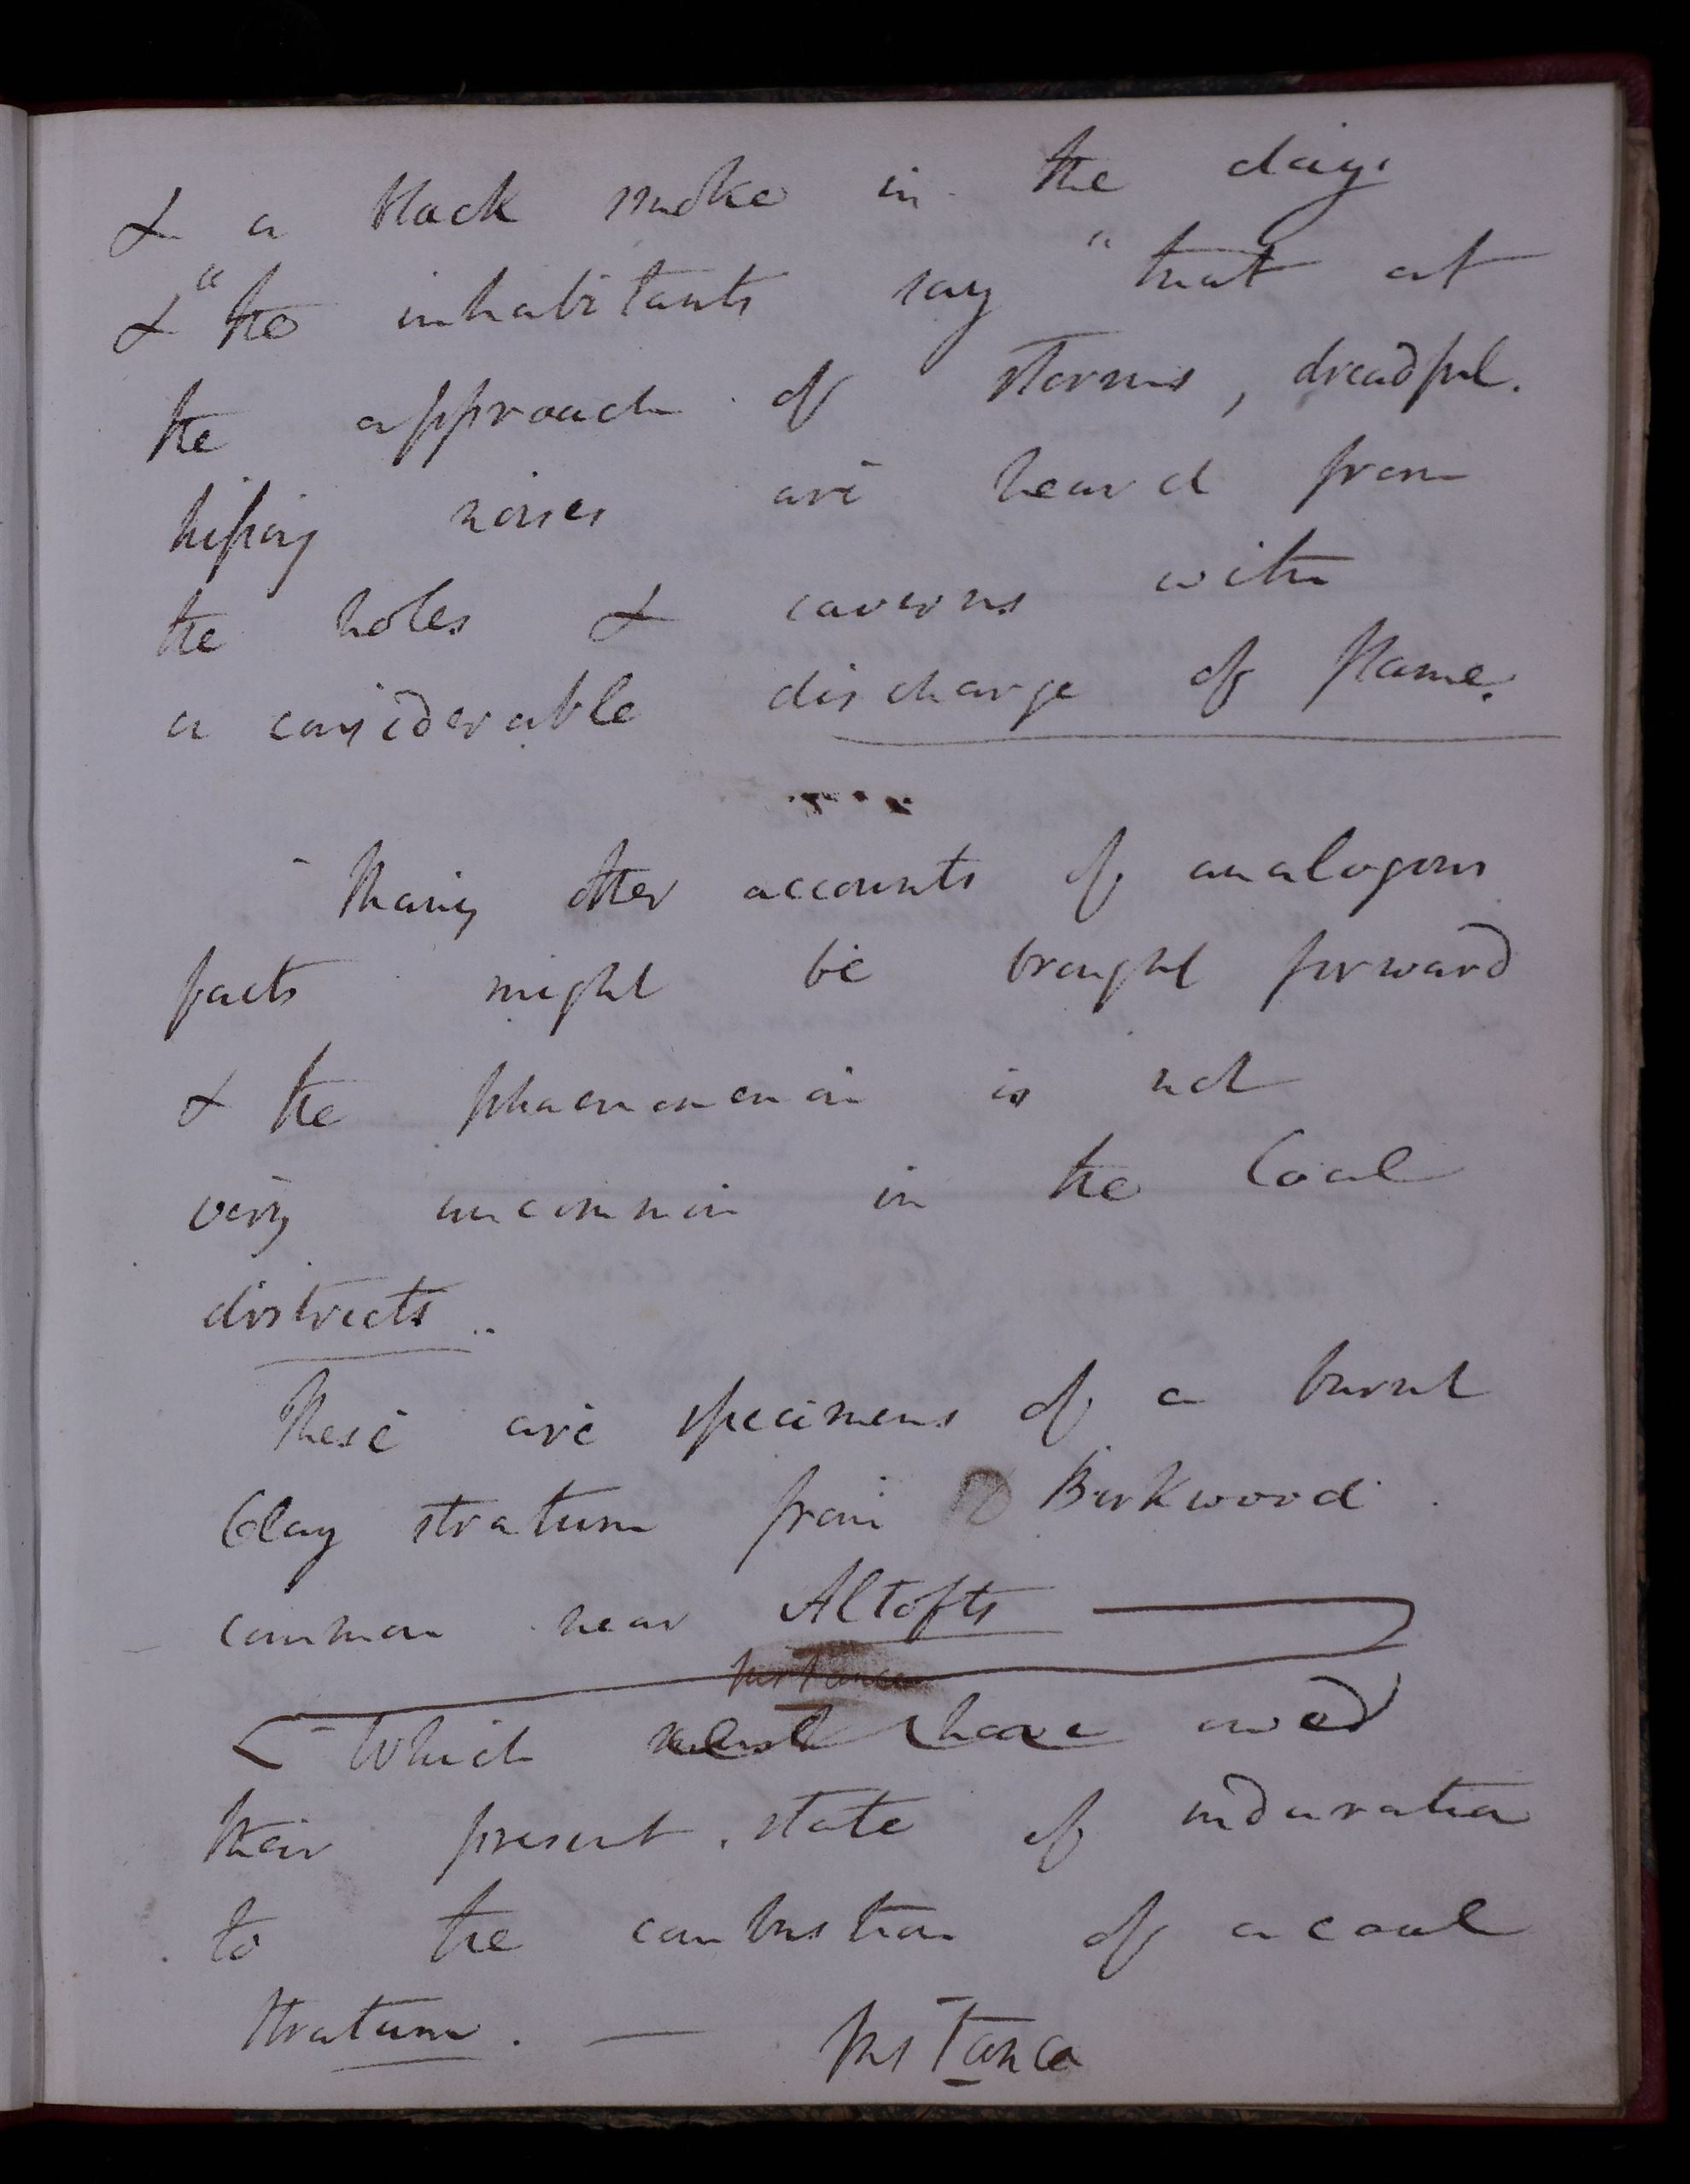 & a black smoke in the day,
& "the inhabitants say "that at
the approach of storms, dreadful.
hissing noises are heard from
the holes & caverns with
a considerable discharge of flame.
- Many other accounts of analogous
facts might be brought forward
& the phaenomenon is not
very uncommon in the Coal
districts..
These are specimens of a burnt
Clay stratum from Birkwood
common near Altofts —
Instance
- Which must have owed
their present state of induration
to the combustion of a coal
stratum. — Instance